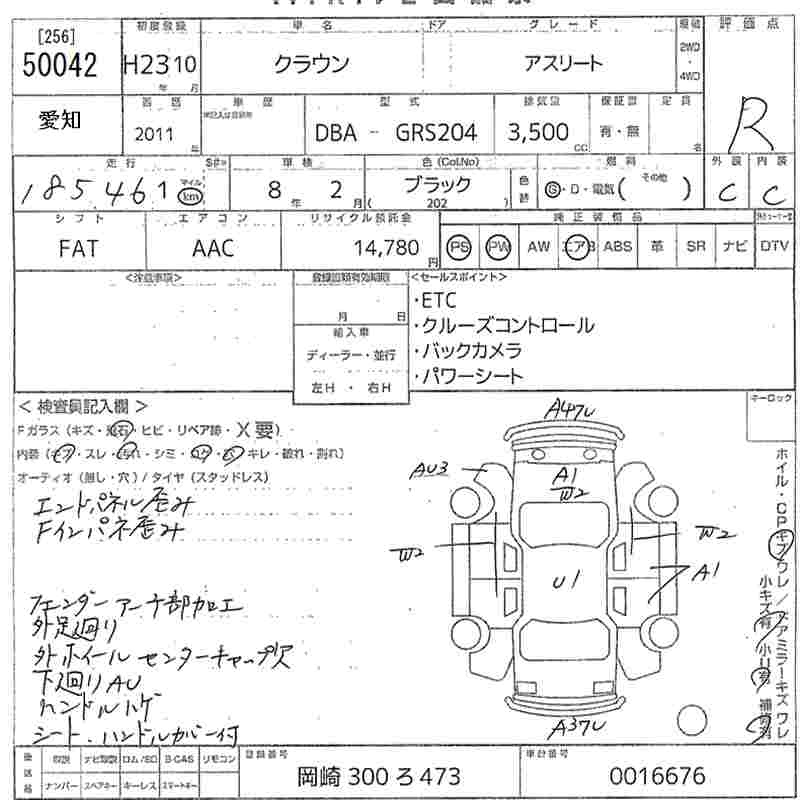 [256]
50042
愛知
初度登録
H23 10
年 月
車名 ドア グレード
クラウン
アスリート
2WD
・
4WD
評価点
R
2011
車歴
型式
DBA － GRS204
排気量
3,500
CC
保証書
有・無
定員
名
走行
185461
マイル
km
車検
8年 2月
色(Col.No)
ブラック
202
色替
燃料
G・D・電気( その他 )
外装
C
内装
C
シフト
FAT
エアコン
AAC
リサイクル預託金
14,780
円
純正装備品
PS PW AW エアB ABS 革 SR ナビ DTV
＜注意事項＞
登録書類有効期限
月 日
輸入車
ディーラー・並行
左H ・ 右H
＜セールスポイント＞
・ETC
・クルーズコントロール
・バックカメラ
・パワーシート
キーロック
＜ 検査員記入欄 ＞
Fガラス(キズ・飛石・ヒビ・リペア跡・X要)
内装(キズ・スレ・汚れ・シミ・コゲ・穴・キレ・破れ・割れ)
オーディオ(無し・穴)/タイヤ(スタッドレス)
エンドパネル歪み
Fインパネ歪み
フェンダーアーチ部加工
外足廻り
外ホイールセンターキャップ欠
下廻りAU
ハンドルハゲ
シート、ハンドルカバー付
A47U
AU3
A1
W2
W2
W2
U1
A1
A37U
ホイル・CPキズワレ/ドアミラーキズワレ
小キズ有 小U有 補修有
後送品
取説 ナビ取説 ロム/SD B-CAS リモコン
ナンバー スペアキー キーレス スマートキー
登録番号
岡崎 300 ろ 473
車台番号
0016676